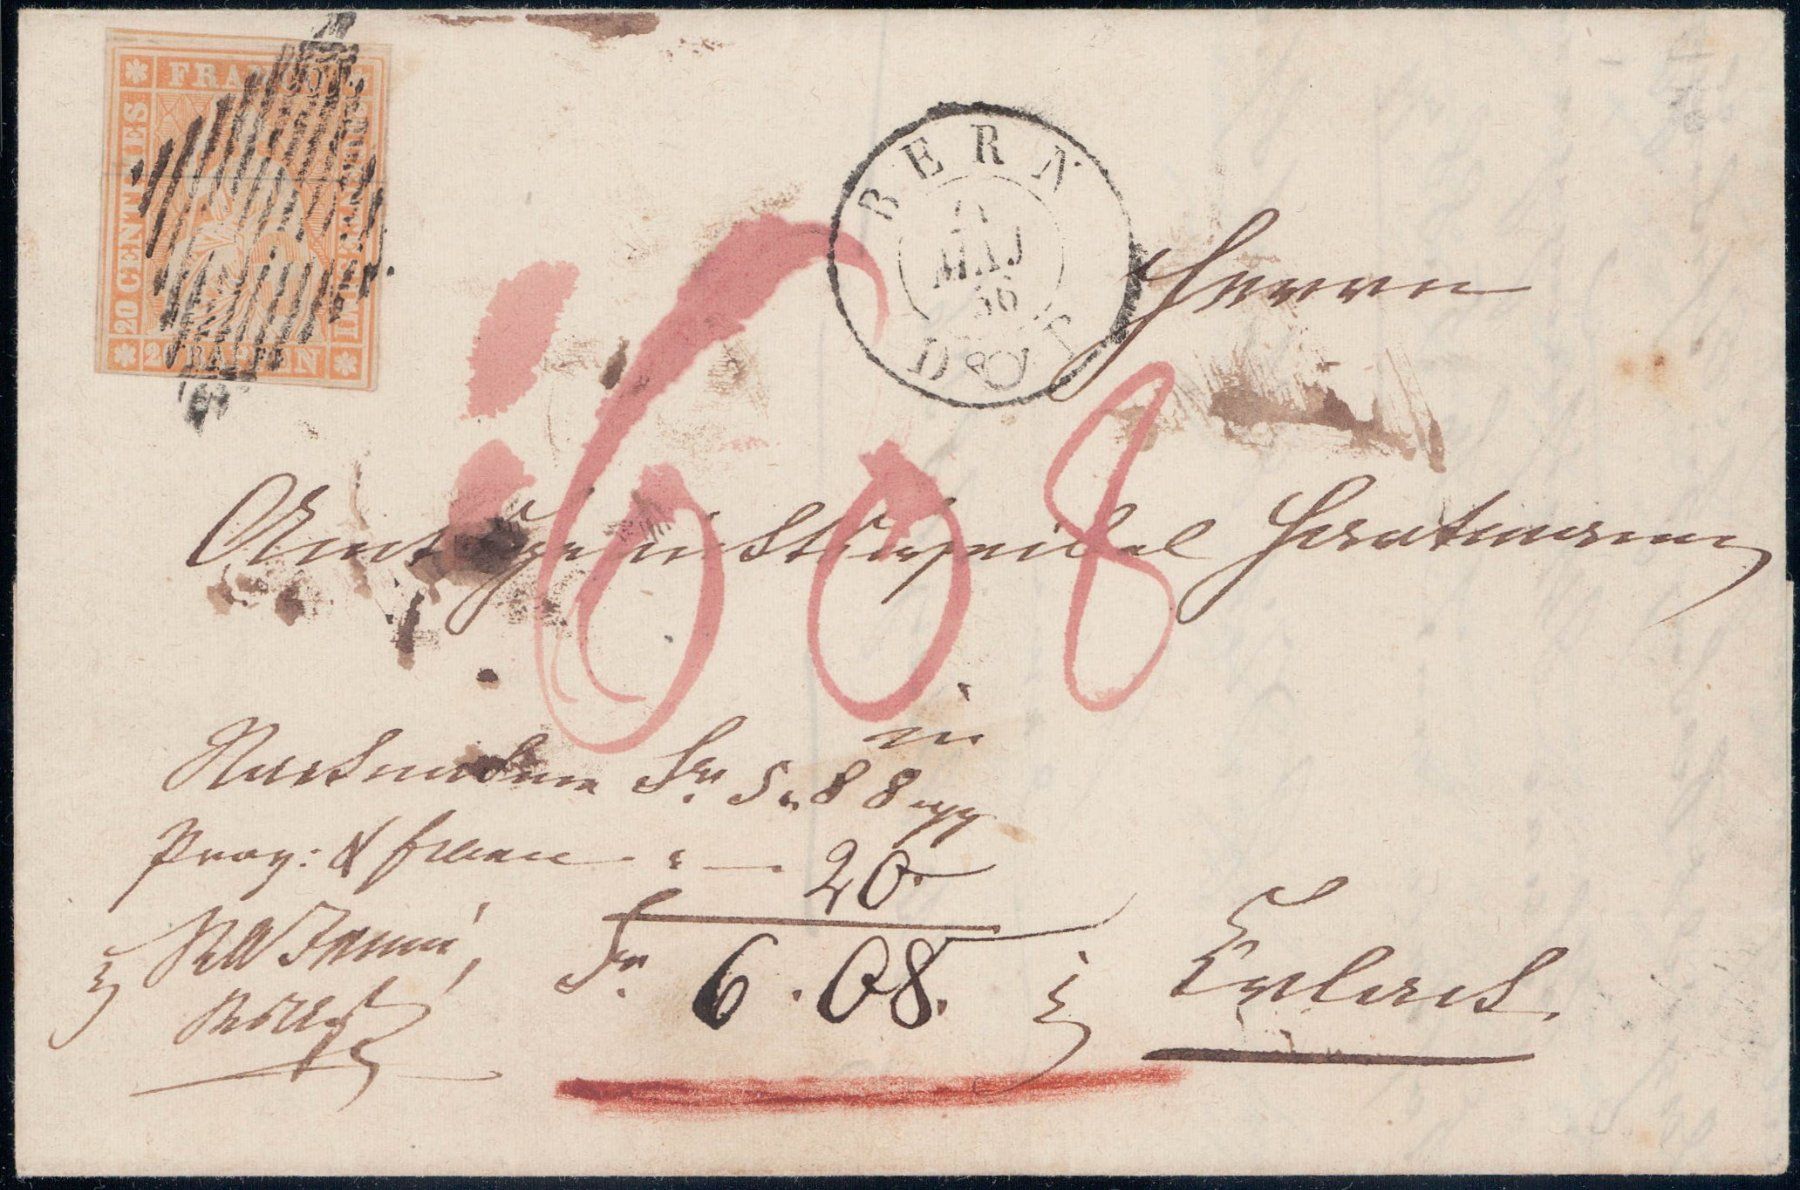 FRANCO
20 CENTIMES
20 RAPPEN
BERN
MAJ
56
608
Herrn
Amtsgerichtsweibel
in
Nachnahme Fr. 5.88
Prov: & franco " — 20.
Fr. 6.08.
Erlach.